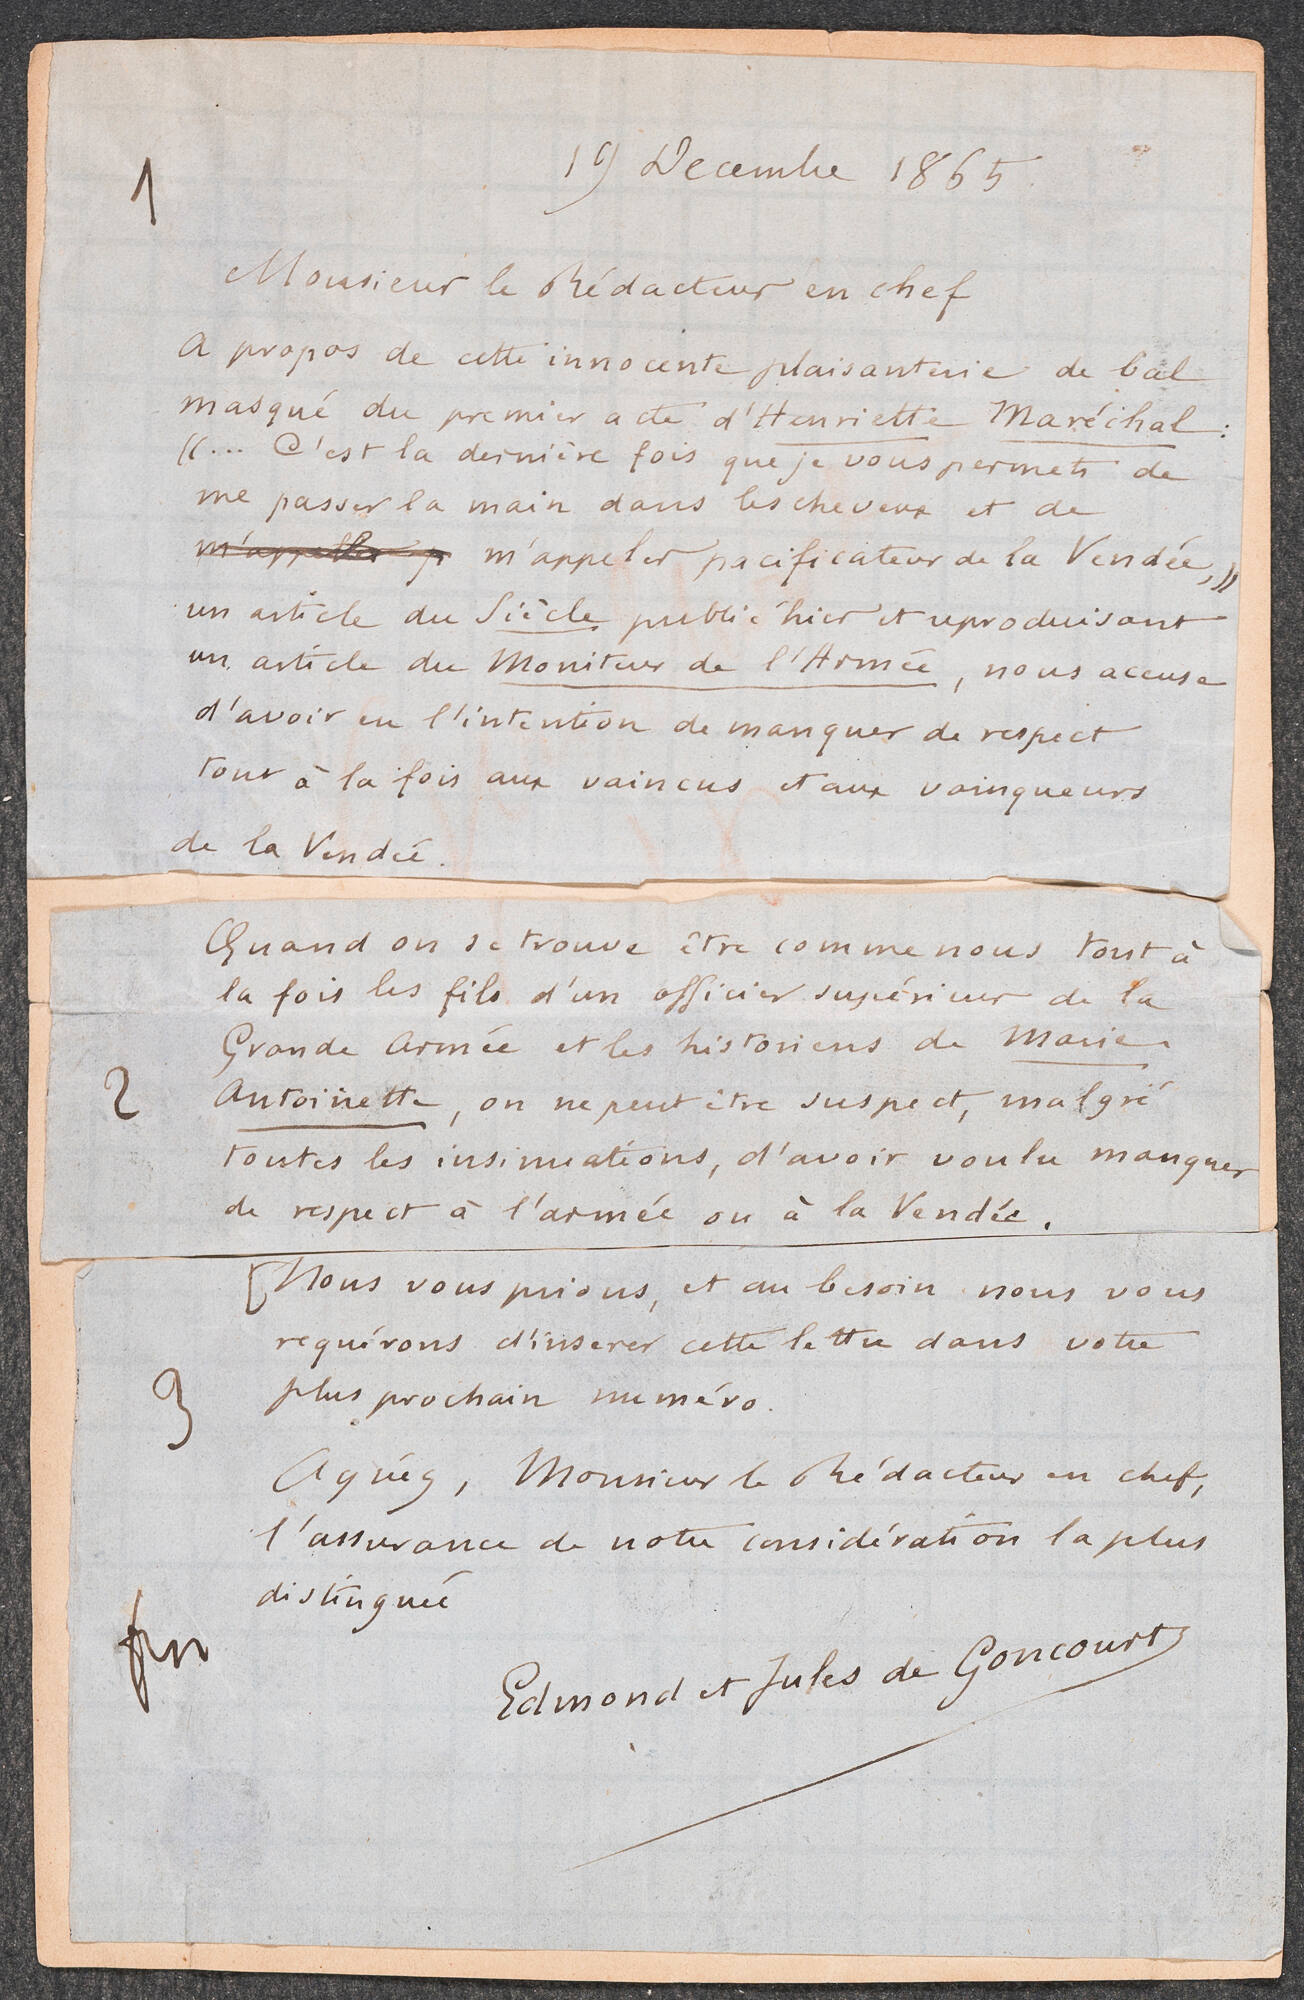 1
19 Decembre 1865
Monsieur le Rédacteur en chef
A propos de cette innocente plaisanterie de bal
masqué du premier acte d'Henriette Maréchal :
« ... C'est la dernière fois que je vous permets de
me passer la main dans les cheveux et de
m'appeller p m'appeler pacificateur de la Vendée, »
un article du Siècle publié hier et reproduisant
un article du Moniteur de l'Armée, nous accuse
d'avoir eu l'intention de manquer de respect
tout à la fois aux vaincus et aux vainqueurs
de la Vendée.
Quand on se trouve être comme nous tout à
la fois les fils d'un officier supérieur de la
Grande Armée et les historiens de Marie
2
Antoinette, on ne peut être suspect, malgré
toutes les insinuations, d'avoir voulu manquer
de respect à l'armée ou à la Vendée.
[Nous vous prions, et au besoin nous vous
requérons d'inserer cette lettre dans votre
3
plus prochain numéro.
Agréez, Monsieur le Rédacteur en chef,
l'assurance de notre considération la plus
distinguée
fin
Edmond et Jules de Goncourt